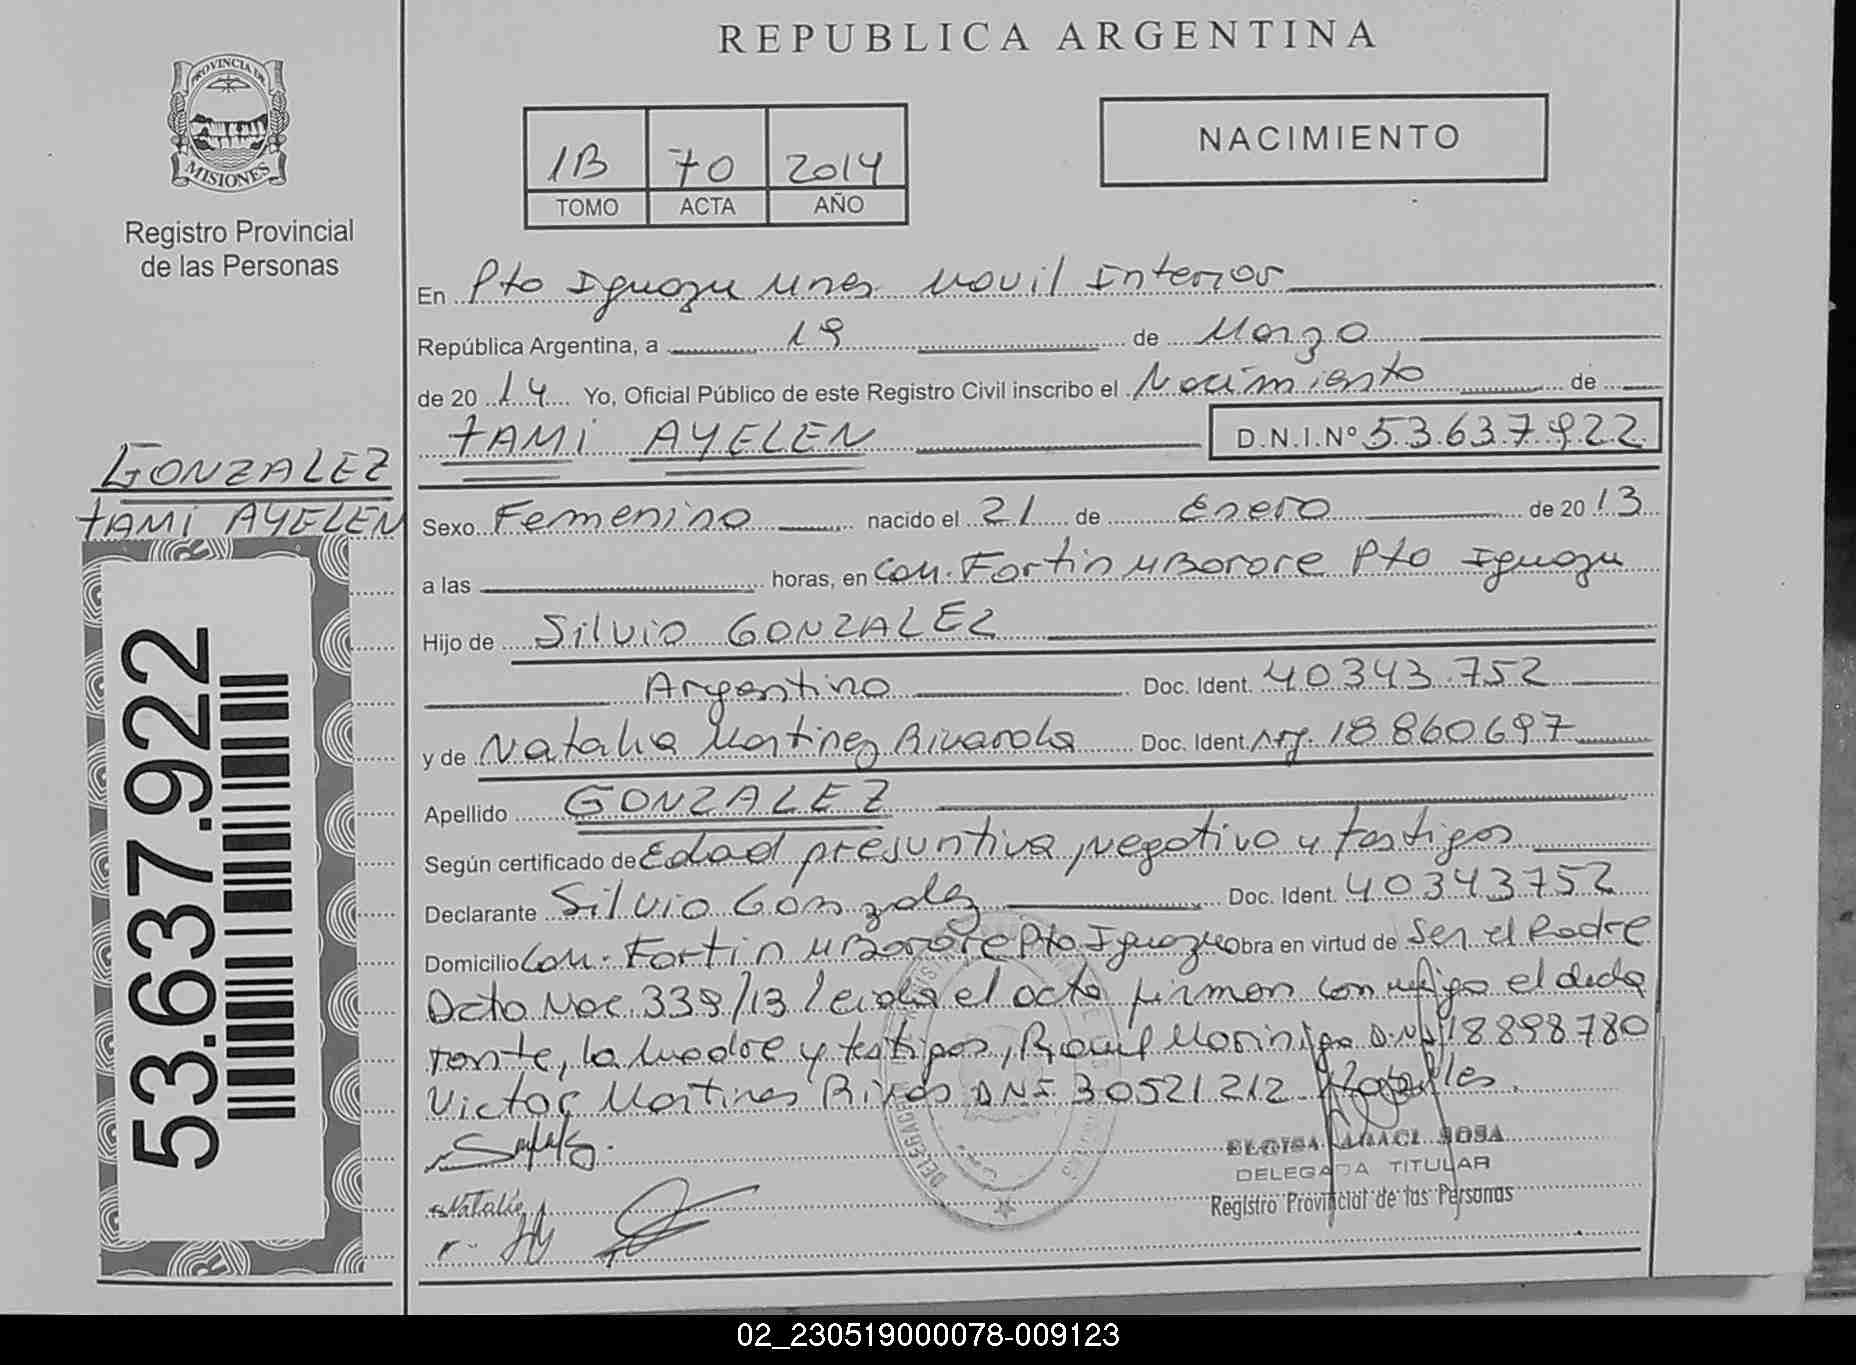 REPUBLICA ARGENTINA
PROVINCIA DE
MISIONES
Registro Provincial
de las Personas
1B 70 2014
TOMO ACTA AÑO
NACIMIENTO
En Pto Iguazu Movil Interior
República Argentina, a 19 de Marzo
de 2014 Yo, Oficial Público de este Registro Civil inscribo el Nacimiento de
TAMI AYELEN D.N.I.Nº 53.637.922
GONZALEZ
TAMI AYELEN
Sexo Femenino nacido el 21 de Enero de 2013
a las horas, en Com. Fortin MBorore Pto Iguazu
Hijo de Silvio GONZALEZ
Argentino Doc. Ident. 40343.752
y de Natalia Martinez Rivarola Doc. Ident. Arg. 18860697
Apellido GONZALEZ
Según certificado de Edad presuntiva, negativo y testigos
Declarante Silvio Gonzalez Doc. Ident. 40343752
Domicilio Com. Fortin MBorore Pto Iguazu Obra en virtud de Ser el Padre
Dcto Nac. 339/13 leida el acta firman conmigo el decla
rante, la madre y testigos, Raul Morinigo D.N.I 18898780
Victor Martines Rivas DNI 30521212
ELOISA ARACI SOSA
DELEGADA TITULAR
Registro Provincial de las Personas
Natalia
53.637.922
02_230519000078-009123